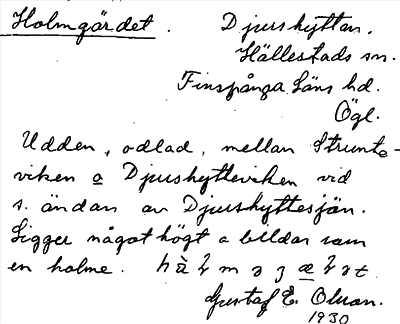 Holmgärdet. Djurshyttan.
Hällestads sn.
Finspånga Läns hd.
Ögl.
Udden, odlad, mellan Strunte-
viken o Djurshytteviken vid
s. ändan av Djurshyttesjön.
Ligger något högt o bildar som
en holme.
Gustaf E. Olsson.
1930